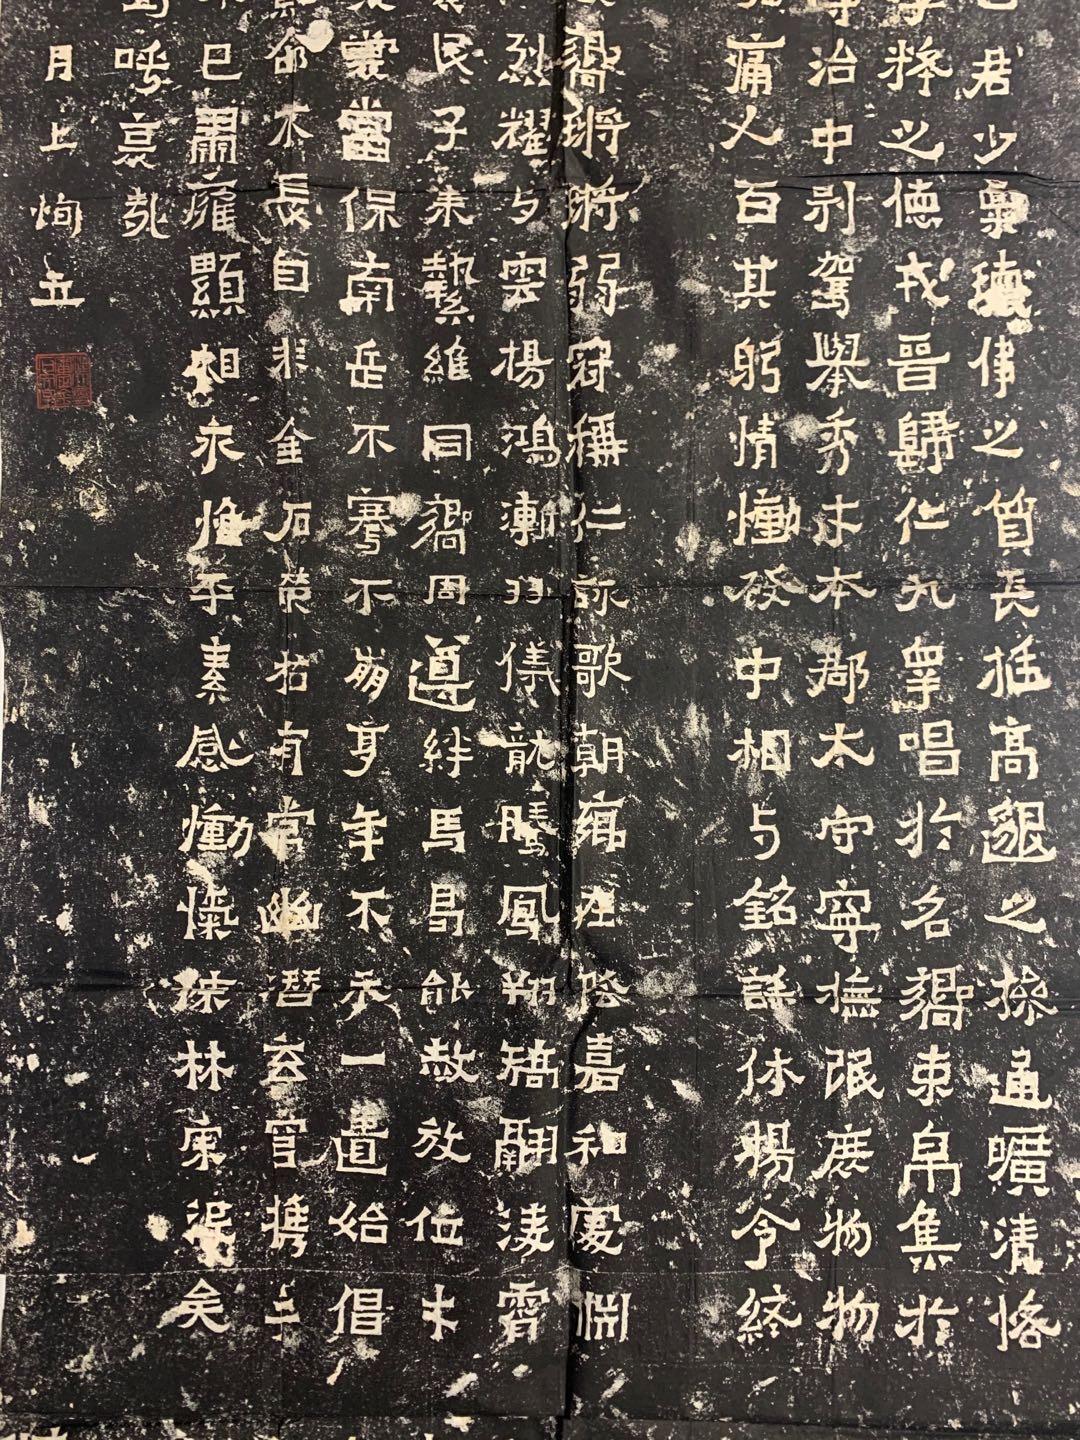 君少稟瓌偉之質長挺高邈之操通曠清恪
粹之德戎晉歸仁九皋唱於名響束帛集於
治中別駕舉秀才本郡太守寧撫氓庶物物
痛人百其躬情慟發中相與銘誄休揚令終
響鏘鏘弱冠稱仁詠歌朝鄉在陰嘉和處淵
烈耀與雲揚鴻漸羽儀龍騰鳳翔矯翮淩霄
民子來縶維同響周遵絆馬曷能赦放位才
裳當保南岳不騫不崩享年不永一匱始倡
命不長自非金石榮枯有常幽潛玄穹攜手
已肅雍顯相永惟平素感慟愾慷林宗沒矣
呼哀哉
月上恂立